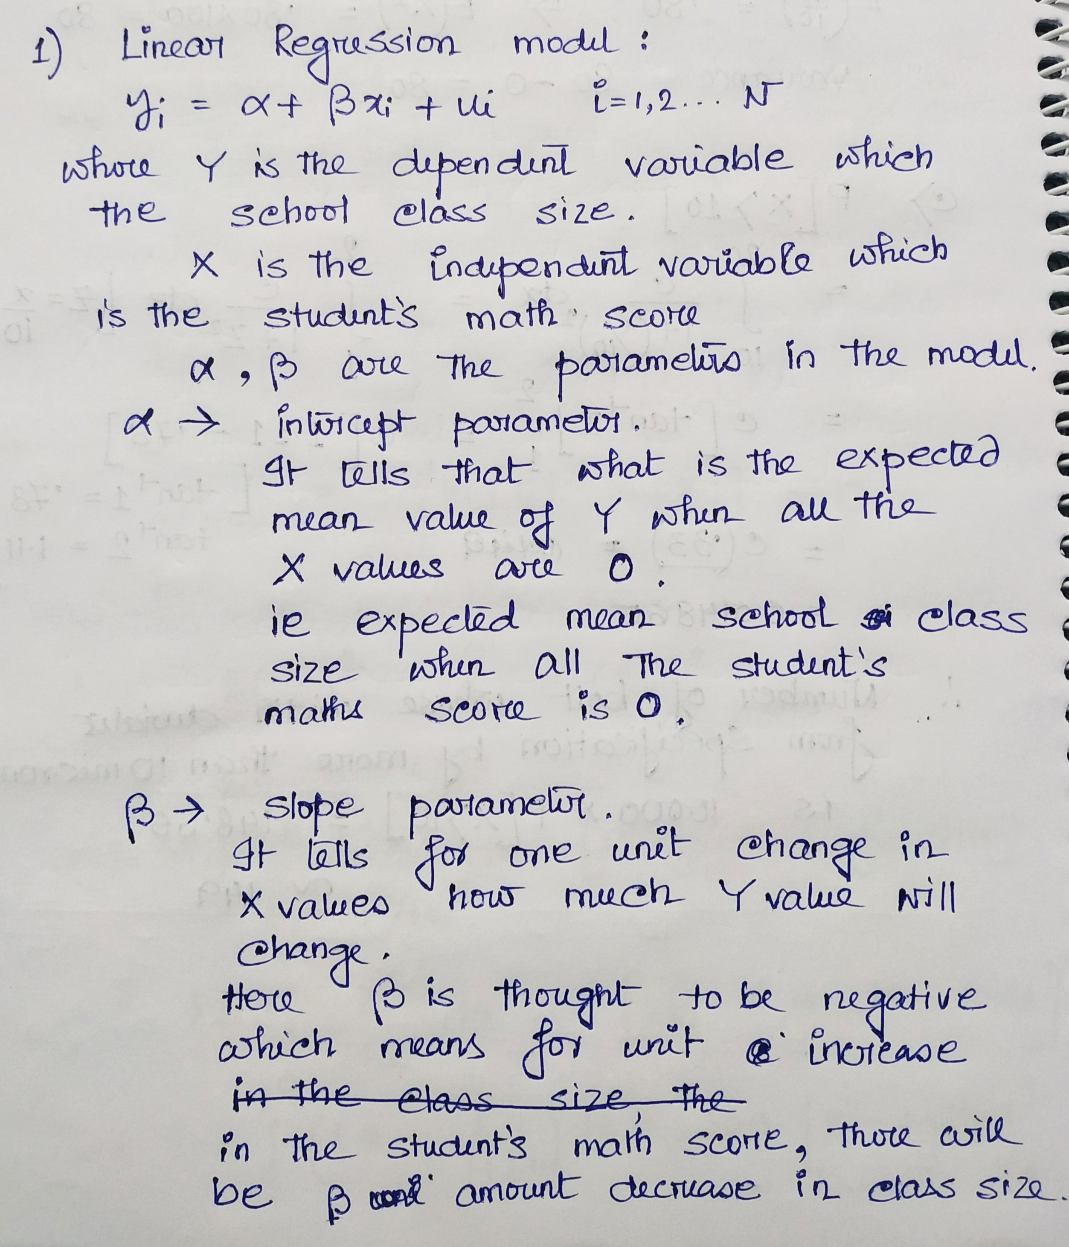 1) Linear Regression model :
yi = α + βxi + ui i=1,2... N
where Y is the dependent variable which
the school class size.
X is the independent variable which
is the student's math score
α, β are the parameters in the model.
α → intercept parameter.
It tells that what is the expected
mean value of Y when all the
X values are 0.
ie expected mean school class
size when all the student's
maths score is 0.
β → slope parameter.
It tells for one unit change in
X values how much Y value will
change.
Here β is thought to be negative
which means for unit increase
in the class size, the
in the student's math score, there will
be β amount decrease in class size.